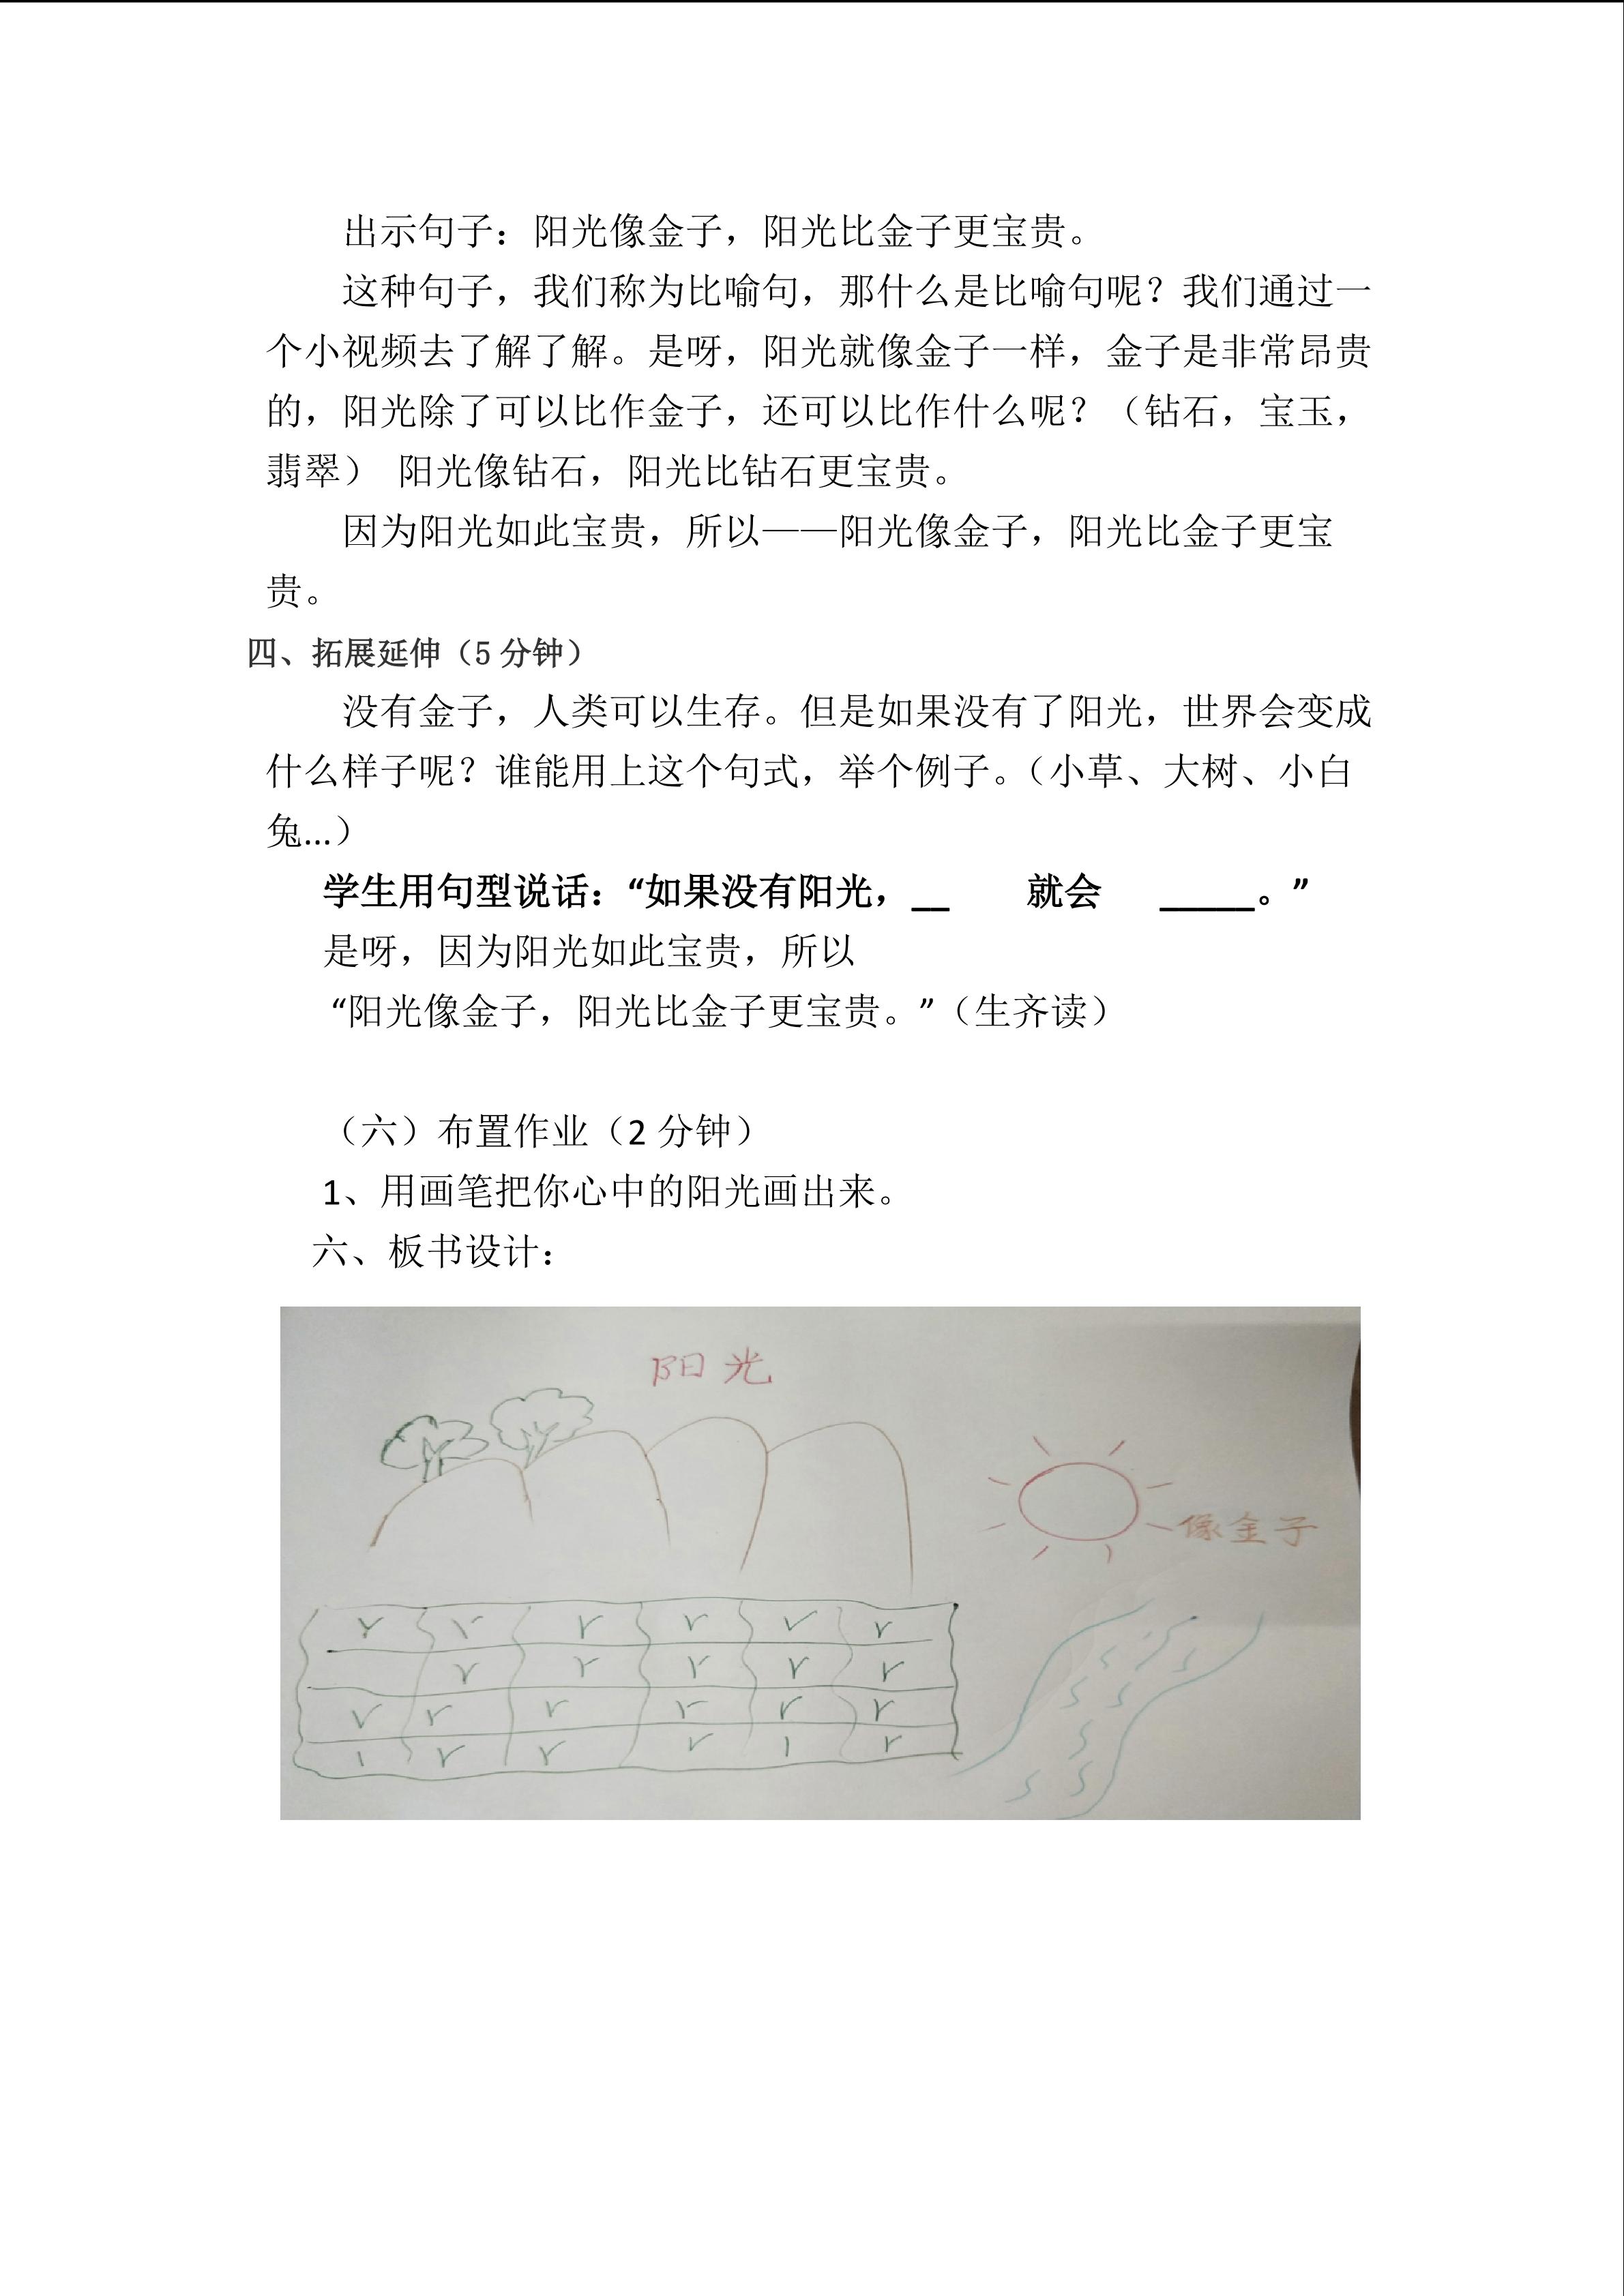 出示句子：阳光像金子，阳光比金子更宝贵。
这种句子，我们称为比喻句，那什么是比喻句呢？我们通过一
个小视频去了解了解。是呀，阳光就像金子一样，金子是非常昂贵
的，阳光除了可以比作金子，还可以比作什么呢？（钻石，宝玉，
翡翠） 阳光像钻石，阳光比钻石更宝贵。
因为阳光如此宝贵，所以——阳光像金子，阳光比金子更宝
贵。
四、拓展延伸（5 分钟）
没有金子，人类可以生存。但是如果没有了阳光，世界会变成
什么样子呢？谁能用上这个句式，举个例子。（小草、大树、小白
兔...）
学生用句型说话：“如果没有阳光，__ 就会 _____。”
是呀，因为阳光如此宝贵，所以
“阳光像金子，阳光比金子更宝贵。”（生齐读）
（六）布置作业（2 分钟）
1、用画笔把你心中的阳光画出来。
六、板书设计：
阳光
像金子